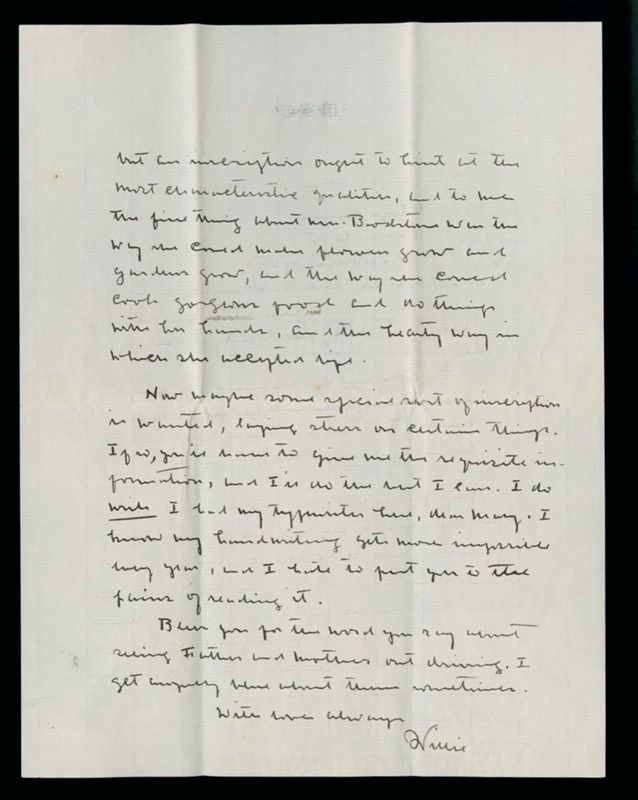 but an inscription ought to hint at the
most characteristic qualities, and to me
the fine thing about Mrs. Bradstreet was the
way she could make flowers grow and
gardens grow, and the way she could
cook gorgeous food and do things
with her hands, and the hearty way in
which she accepted life.
Now maybe some special sort of inscription
is wanted, laying stress on certain things.
If so, you'll have to give me the requisite in-
formation, and I'll do the best I can. I do
wish I had my typewriter here, dear Mary. I
know my handwriting gets more impossible
every year, and I hate to put you to the
pains of reading it.
Bless you for the word you say about
seeing Father and Mother out driving. I
get awfully blue about them sometimes.
With love always
Willie